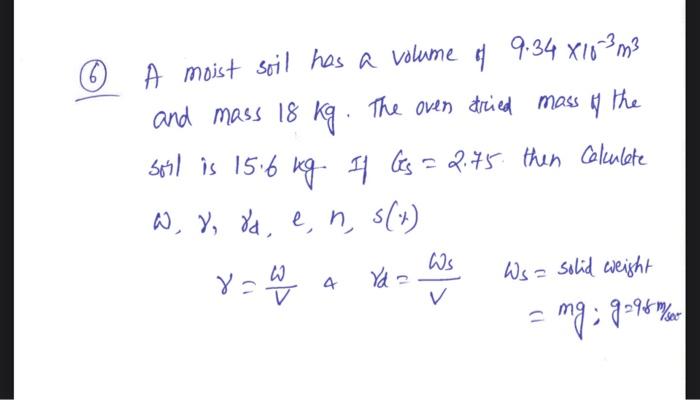 ⑥ A moist soil has a volume of 9.34 ×10⁻³m³
and mass 18 kg. The oven dried mass of the
soil is 15.6 kg. If Gs = 2.75 then Calculate
ω, γ, γd, e, n, s(%)
γ = ω/V & γd = ωs/V ωs = solid weight
= mg; g=9.8 m/sec